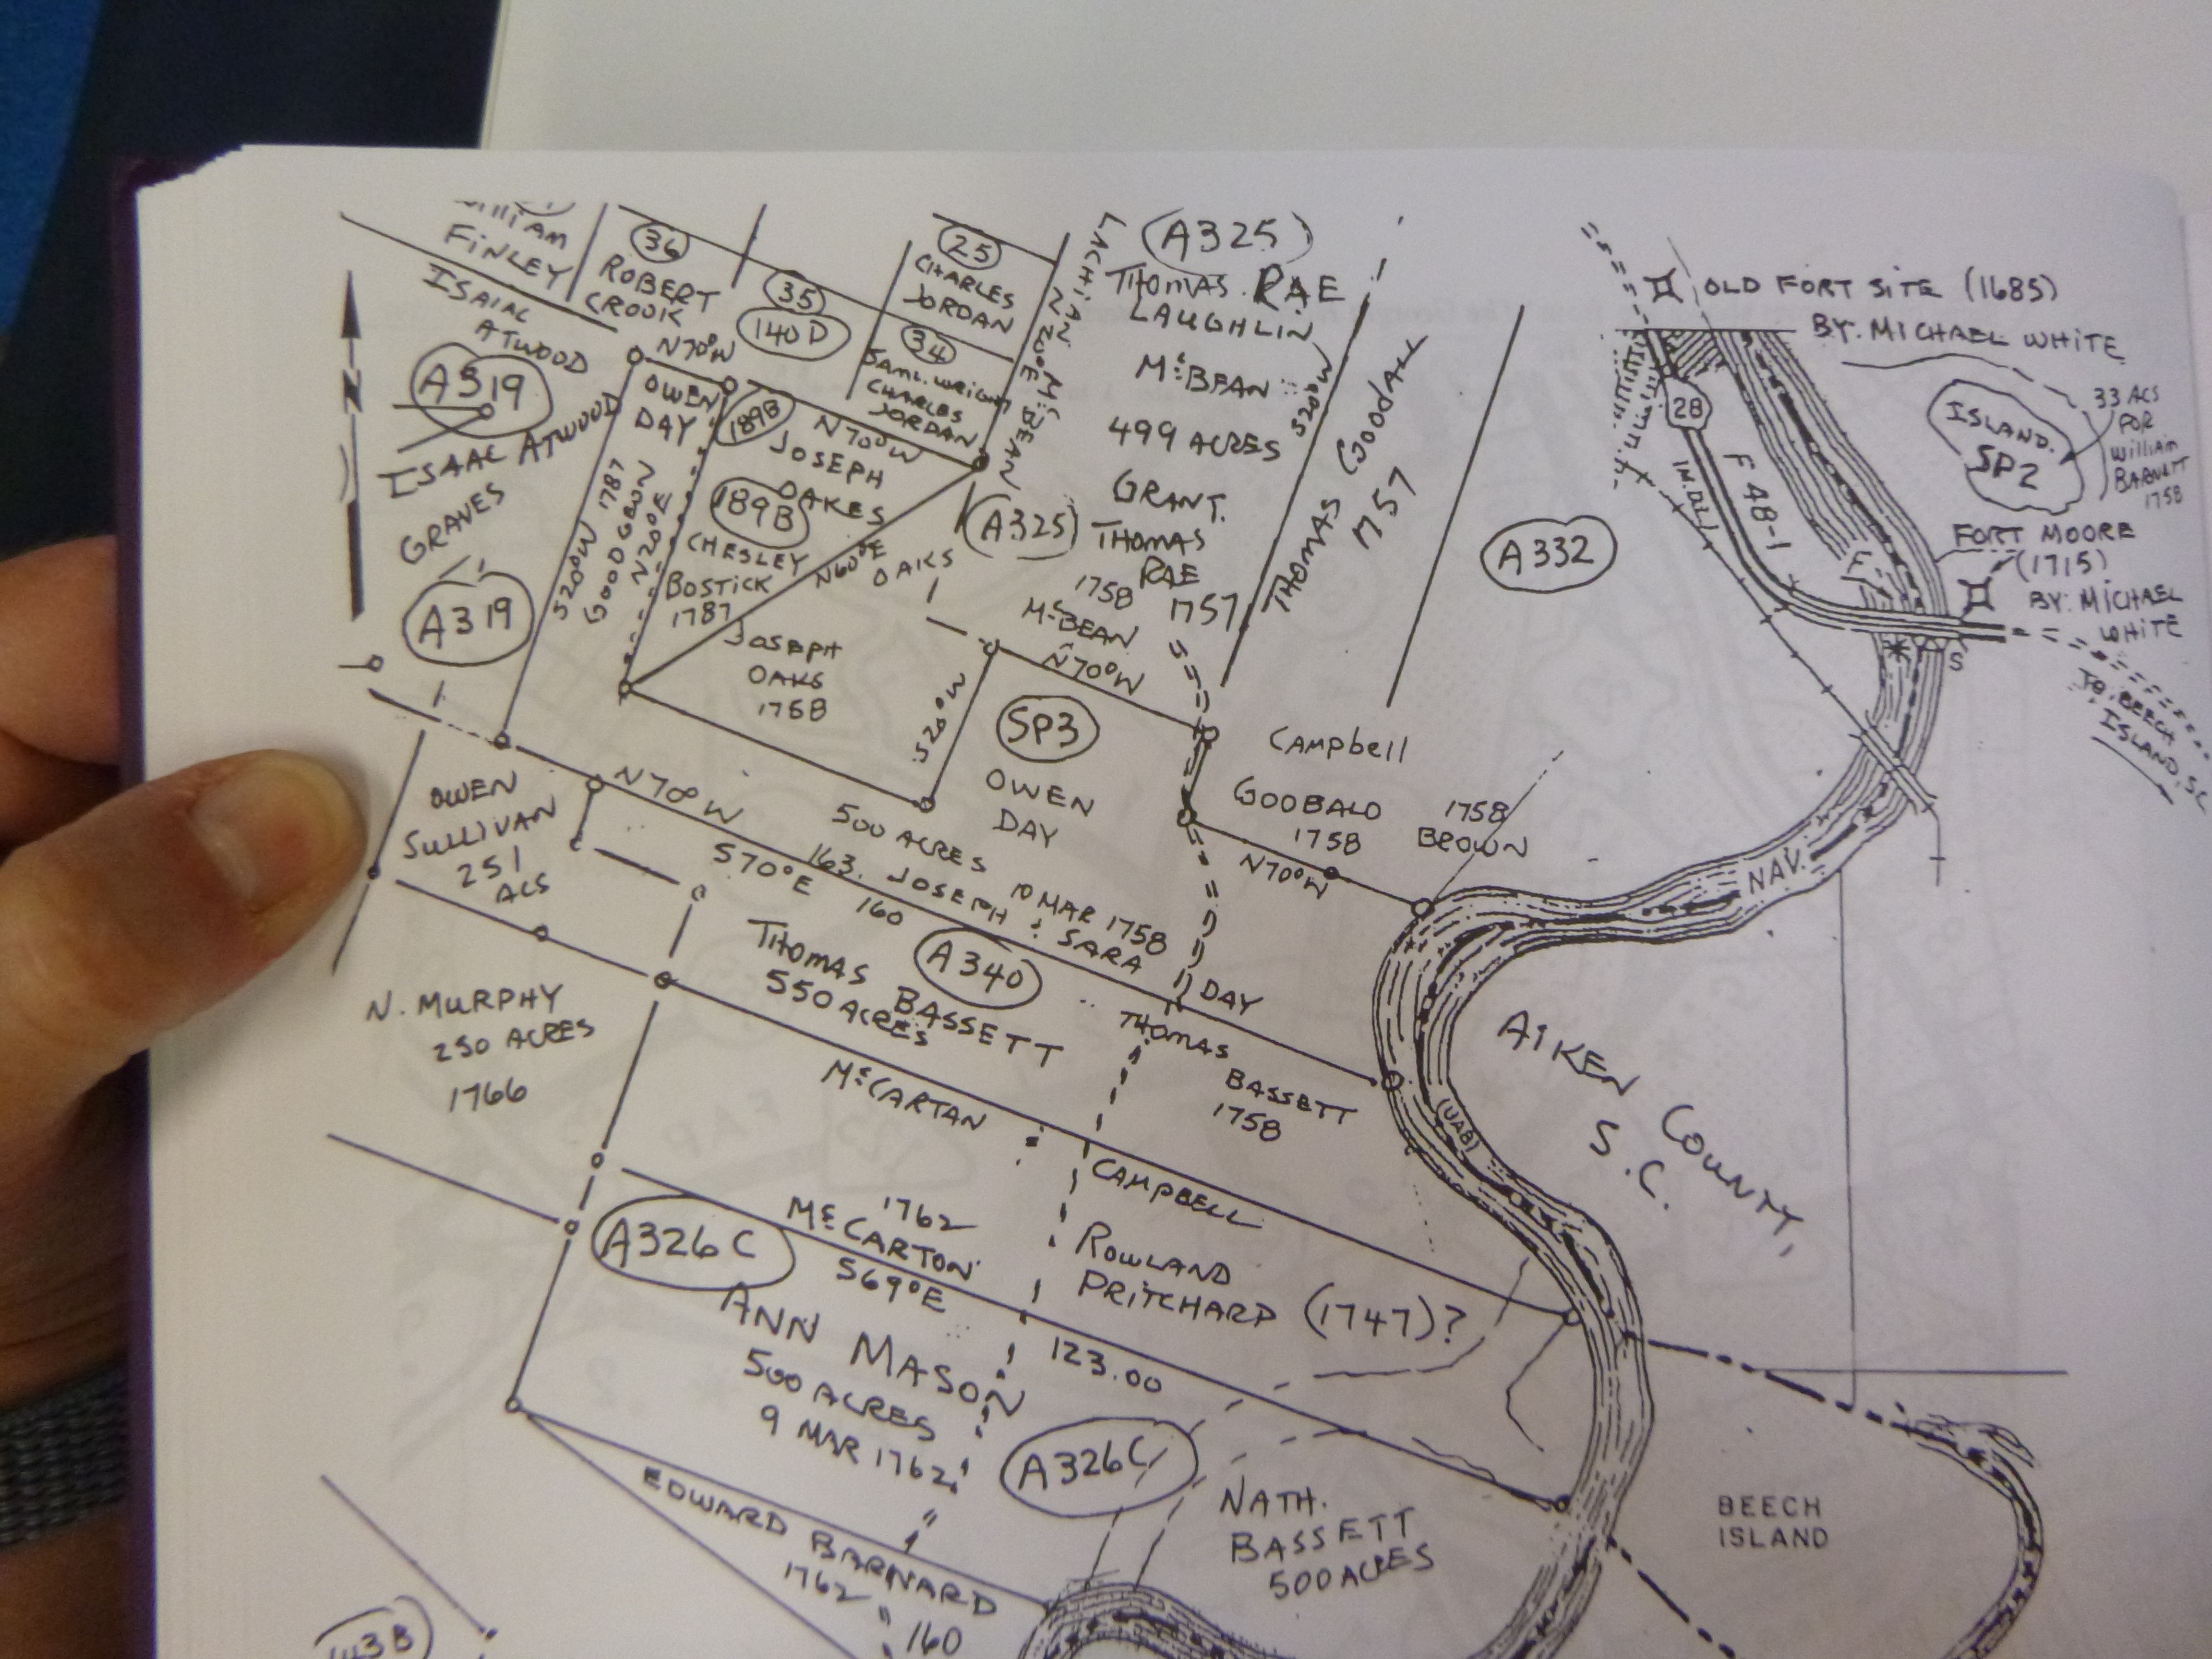 FINLEY
36
ROBERT
CROOK
35
140D
25
CHARLES
JORDAN
34
SAML. WRIGHT
CHARLES
JORDAN
LACHLAN McBEAN
N20°E
A325
THOMAS RAE
LAUGHLIN
McBEAN
499 ACRES
GRANT.
THOMAS
RAE
1757
1758
McBEAN
N70°W
S20°W
THOMAS GOODALL
1757
A332
OLD FORT SITE (1685)
BY: MICHAEL WHITE
28
F 48-1
ISLAND.
SP2
33 ACS
FOR
WILLIAM
BARNETT
1758
FORT MOORE
(1715)
BY: MICHAEL
WHITE
S
TO BEECH
ISLAND, SC
ISAIAC
ATWOOD
A319
ISAAC ATWOOD
GRAVES
A319
N
N70°W
OWEN
DAY
189B
N70°W
JOSEPH
OAKES
189B
CHESLEY
BOSTICK
1787
S20°W 1787
GOODGEON
N20°E
N60°E
OAKS
A325
JOSEPH
OAKS
1758
S20°W
SP3
OWEN
DAY
500 ACRES
10 MAR 1758
163. JOSEPH & SARA
DAY
CAMPbell
GOOBALD
1758
1758
BROWN
N70°W
NAV.
OWEN
SULLIVAN
251
ACS
N70°W
S70°E
160
THOMAS
BASSETT
550 ACRES
A340
THOMAS
BASSETT
1758
AIKEN COUNTY,
S.C.
(UAB)
N. MURPHY
250 ACRES
1766
McCARTAN
CAMPBELL
ROWLAND
PRITCHARD (1747)?
1762
McCARTON
S69°E
123.00
A326C
ANN MASON
500 ACRES
9 MAR 1762
A326C
NATH.
BASSETT
500 ACRES
BEECH
ISLAND
EDWARD BARNARD
1762
160